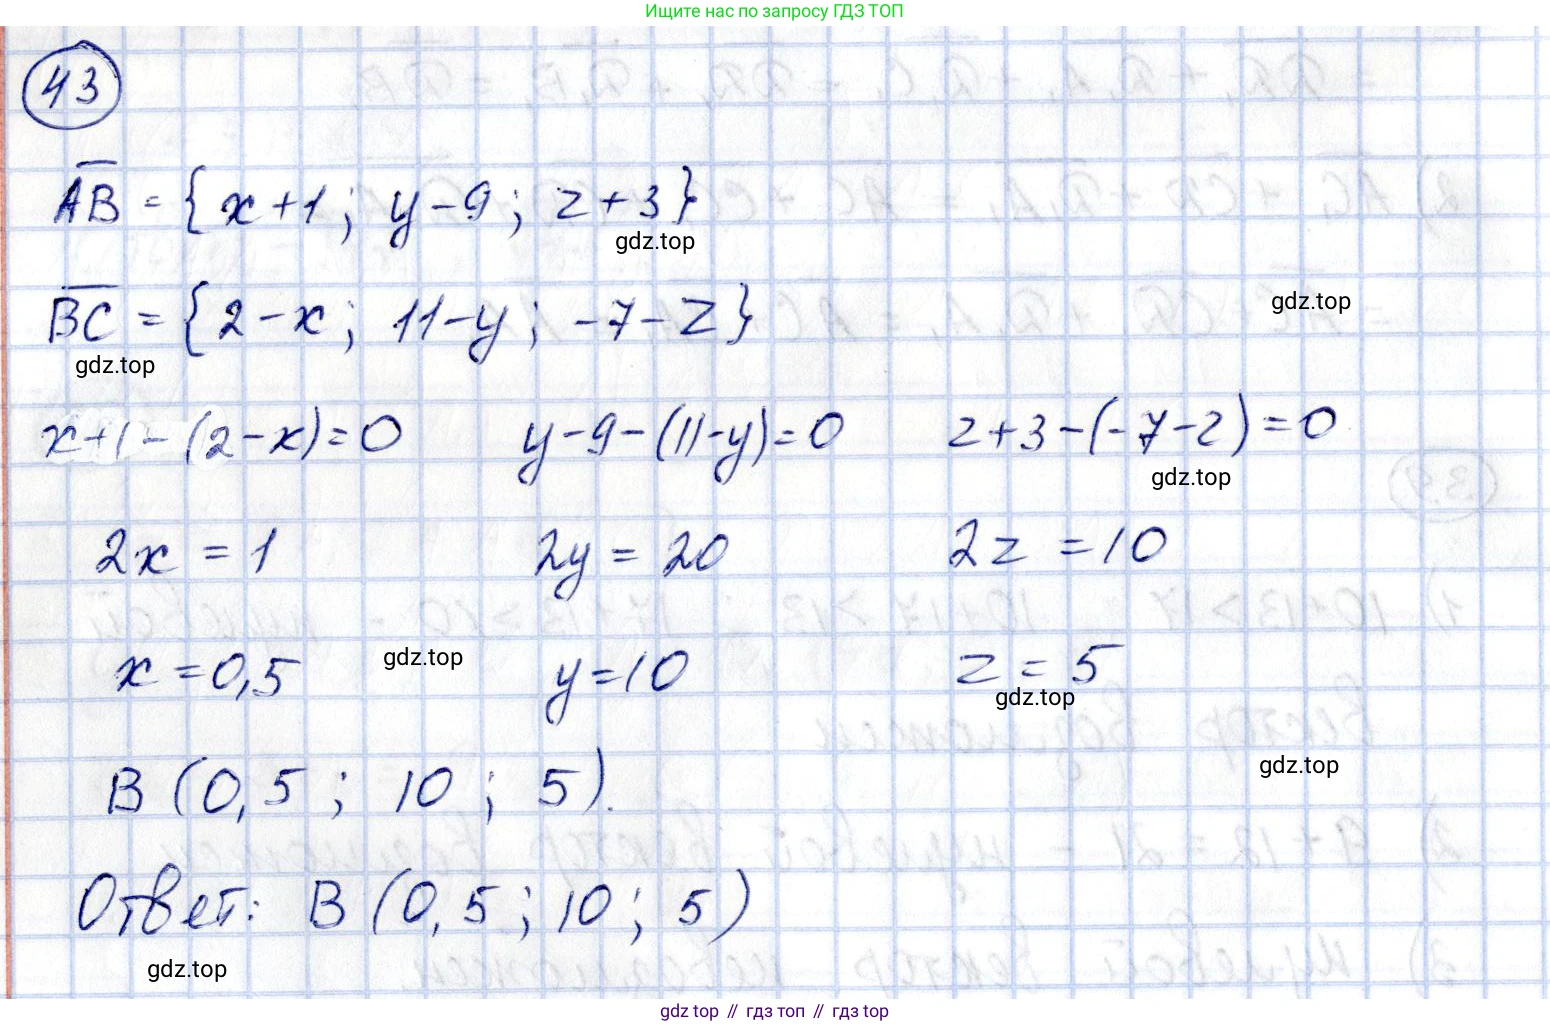 Ищите нас по запросу ГДЗ ТОП
43
AB = {x+1; y-9; z+3}
gdz.top
gdz.top
BC = {2-x; 11-y; -7-z}
gdz.top
x+1-(2-x)=0 y-9-(11-y)=0 z+3-(-7-z)=0
gdz.top
2x = 1 2y = 20 2z = 10
x = 0,5 y = 10 z = 5
gdz.top
gdz.top
B (0,5; 10; 5).
gdz.top
Ответ: B (0,5; 10; 5)
gdz.top
gdz top // гдз топ // гдз top